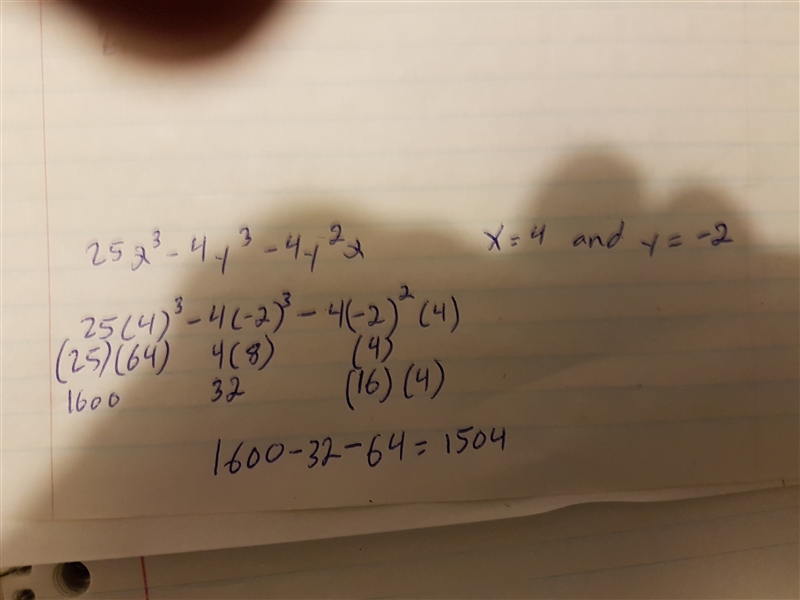 25x³ - 4y³ - 4y²x   x = 4 and y = -2
25(4)³ - 4(-2)³ - 4(-2)² (4)
(25)(64)   4(8)   (4)
1600   32   (16)(4)
1600 - 32 - 64 = 1504